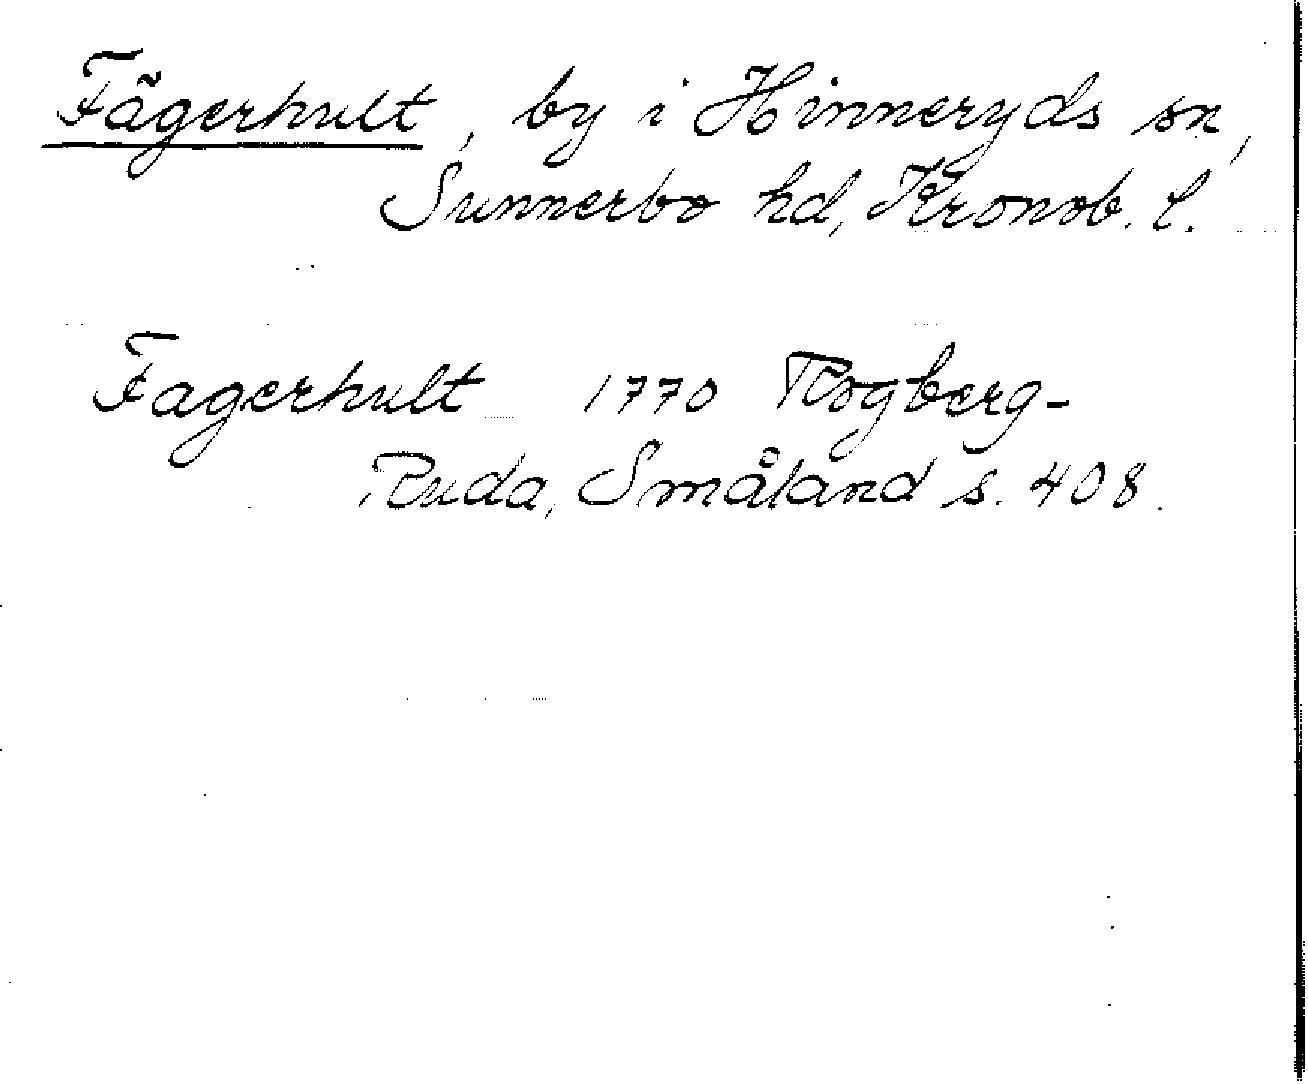 Fägerhult, by i Hinneryds sn,
Sunnerbo hd, Kronob. l.
Fagerhult 1770 Rogberg-
Ruda, Småland s. 408.